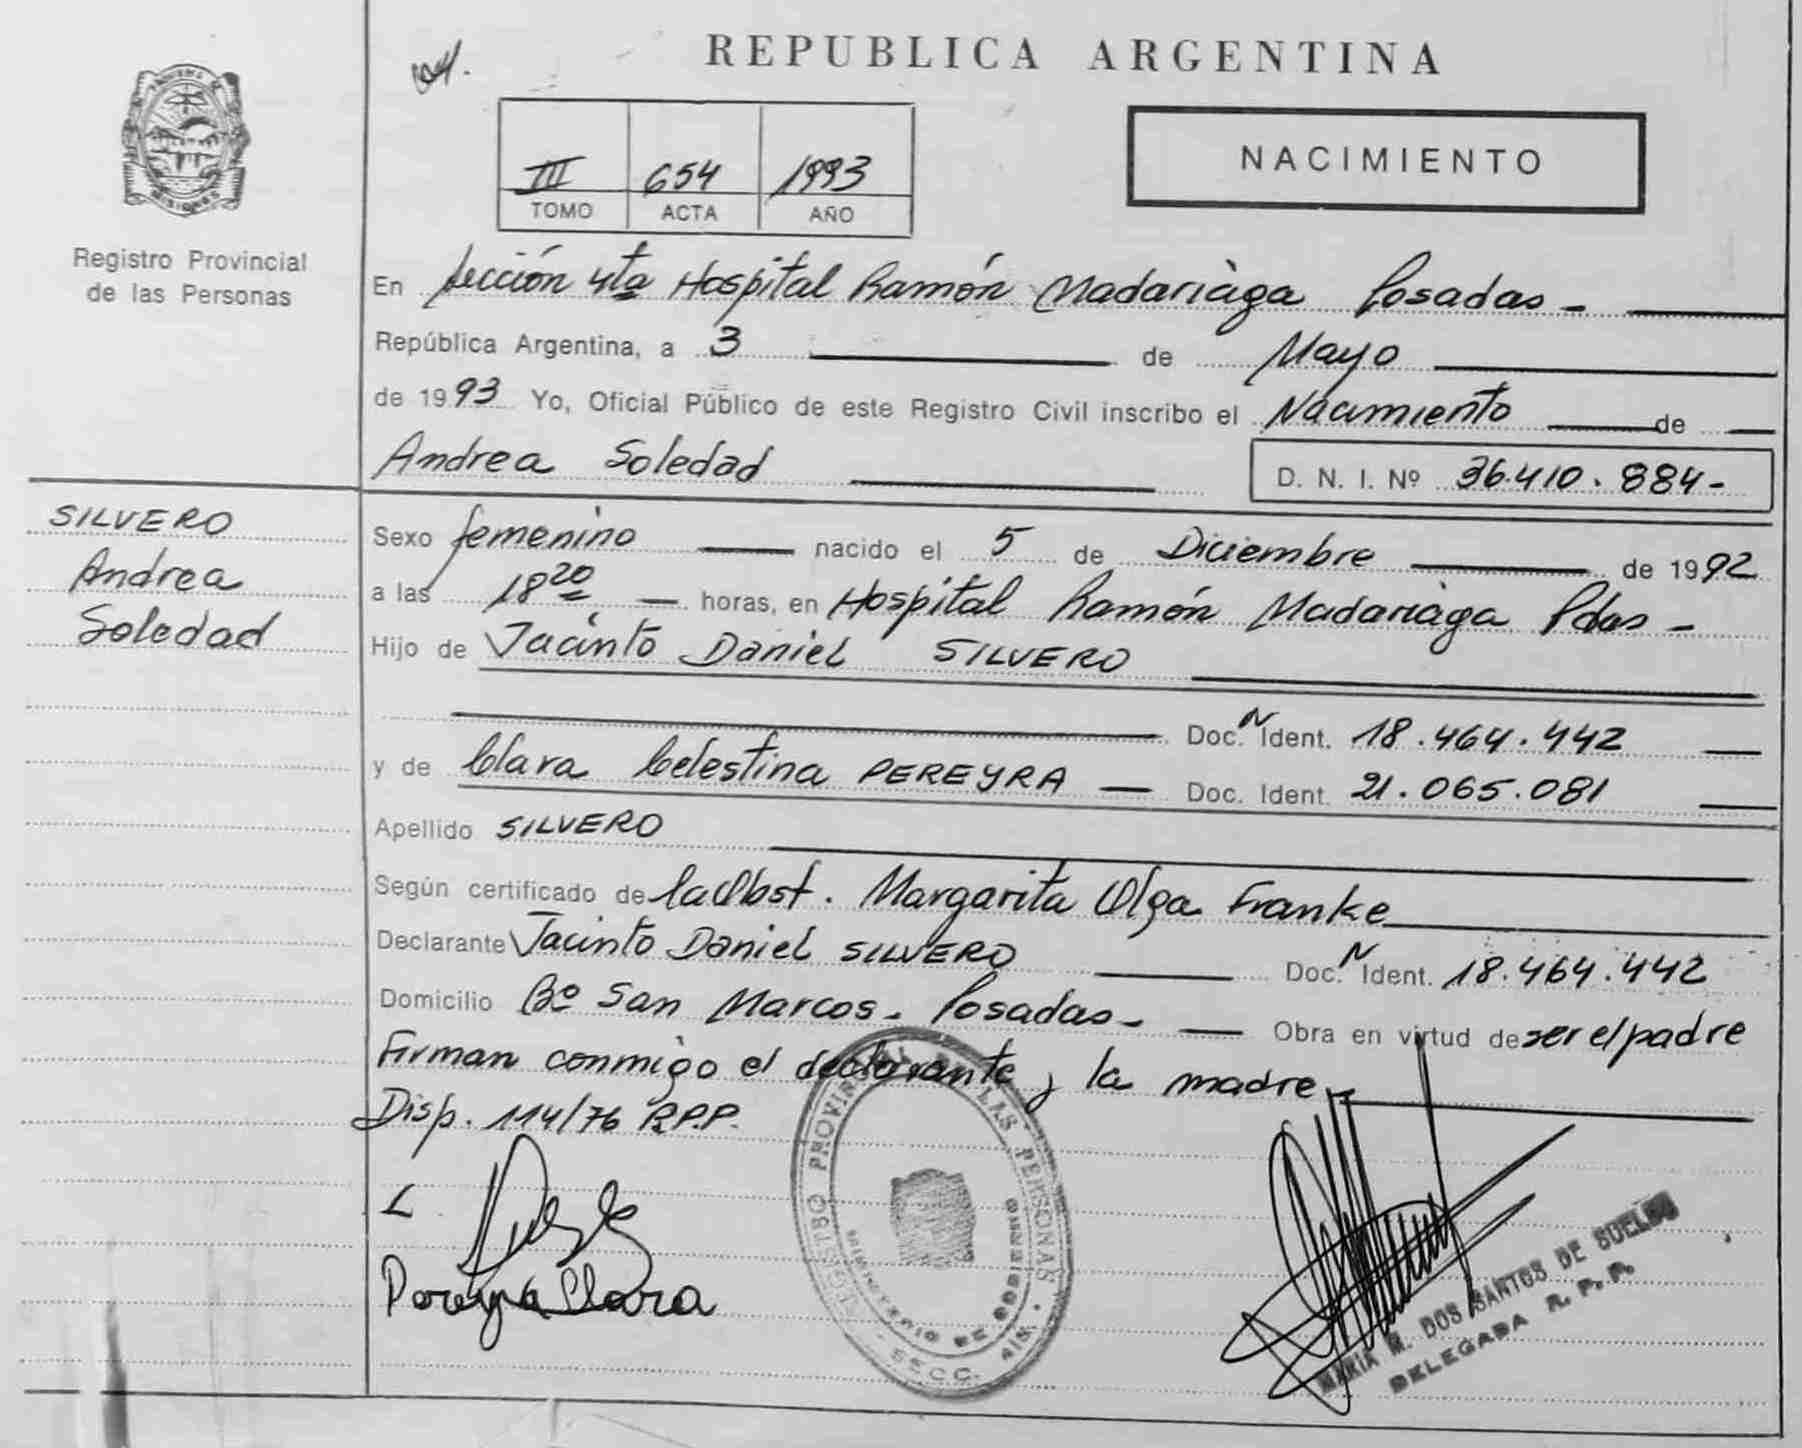 REPUBLICA ARGENTINA
III 654 1993
TOMO ACTA AÑO
NACIMIENTO
MISIONES
Registro Provincial
de las Personas
En Sección 4ta Hospital Ramón Madariaga Posadas -
República Argentina, a 3 de Mayo
de 1993 Yo, Oficial Público de este Registro Civil inscribo el Nacimiento de
Andrea Soledad D. N. I. Nº 36.410.884-
SILVERO
Andrea
Soledad
Sexo femenino nacido el 5 de Diciembre de 1992
a las 18 20 horas, en Hospital Ramón Madariaga Pdas -
Hijo de Jacinto Daniel SILVERO
Doc. N Ident. 18.464.442
y de Clara Celestina PEREYRA Doc. Ident. 21.065.081
Apellido SILVERO
Según certificado de la Obst. Margarita Olga Franke
Declarante Jacinto Daniel SILVERO Doc. N Ident. 18.464.442
Domicilio Bº San Marcos - Posadas - Obra en virtud de ser el padre
Firman conmigo el declarante y la madre
Disp. 114/76 R.P.P.
Pereyra Clara
REGISTRO PROVINCIAL DE LAS PERSONAS
MINISTERIO DE GOBIERNO
SECC.
MARIA M. DOS SANTOS DE SUELDO
DELEGADA R. P. P.